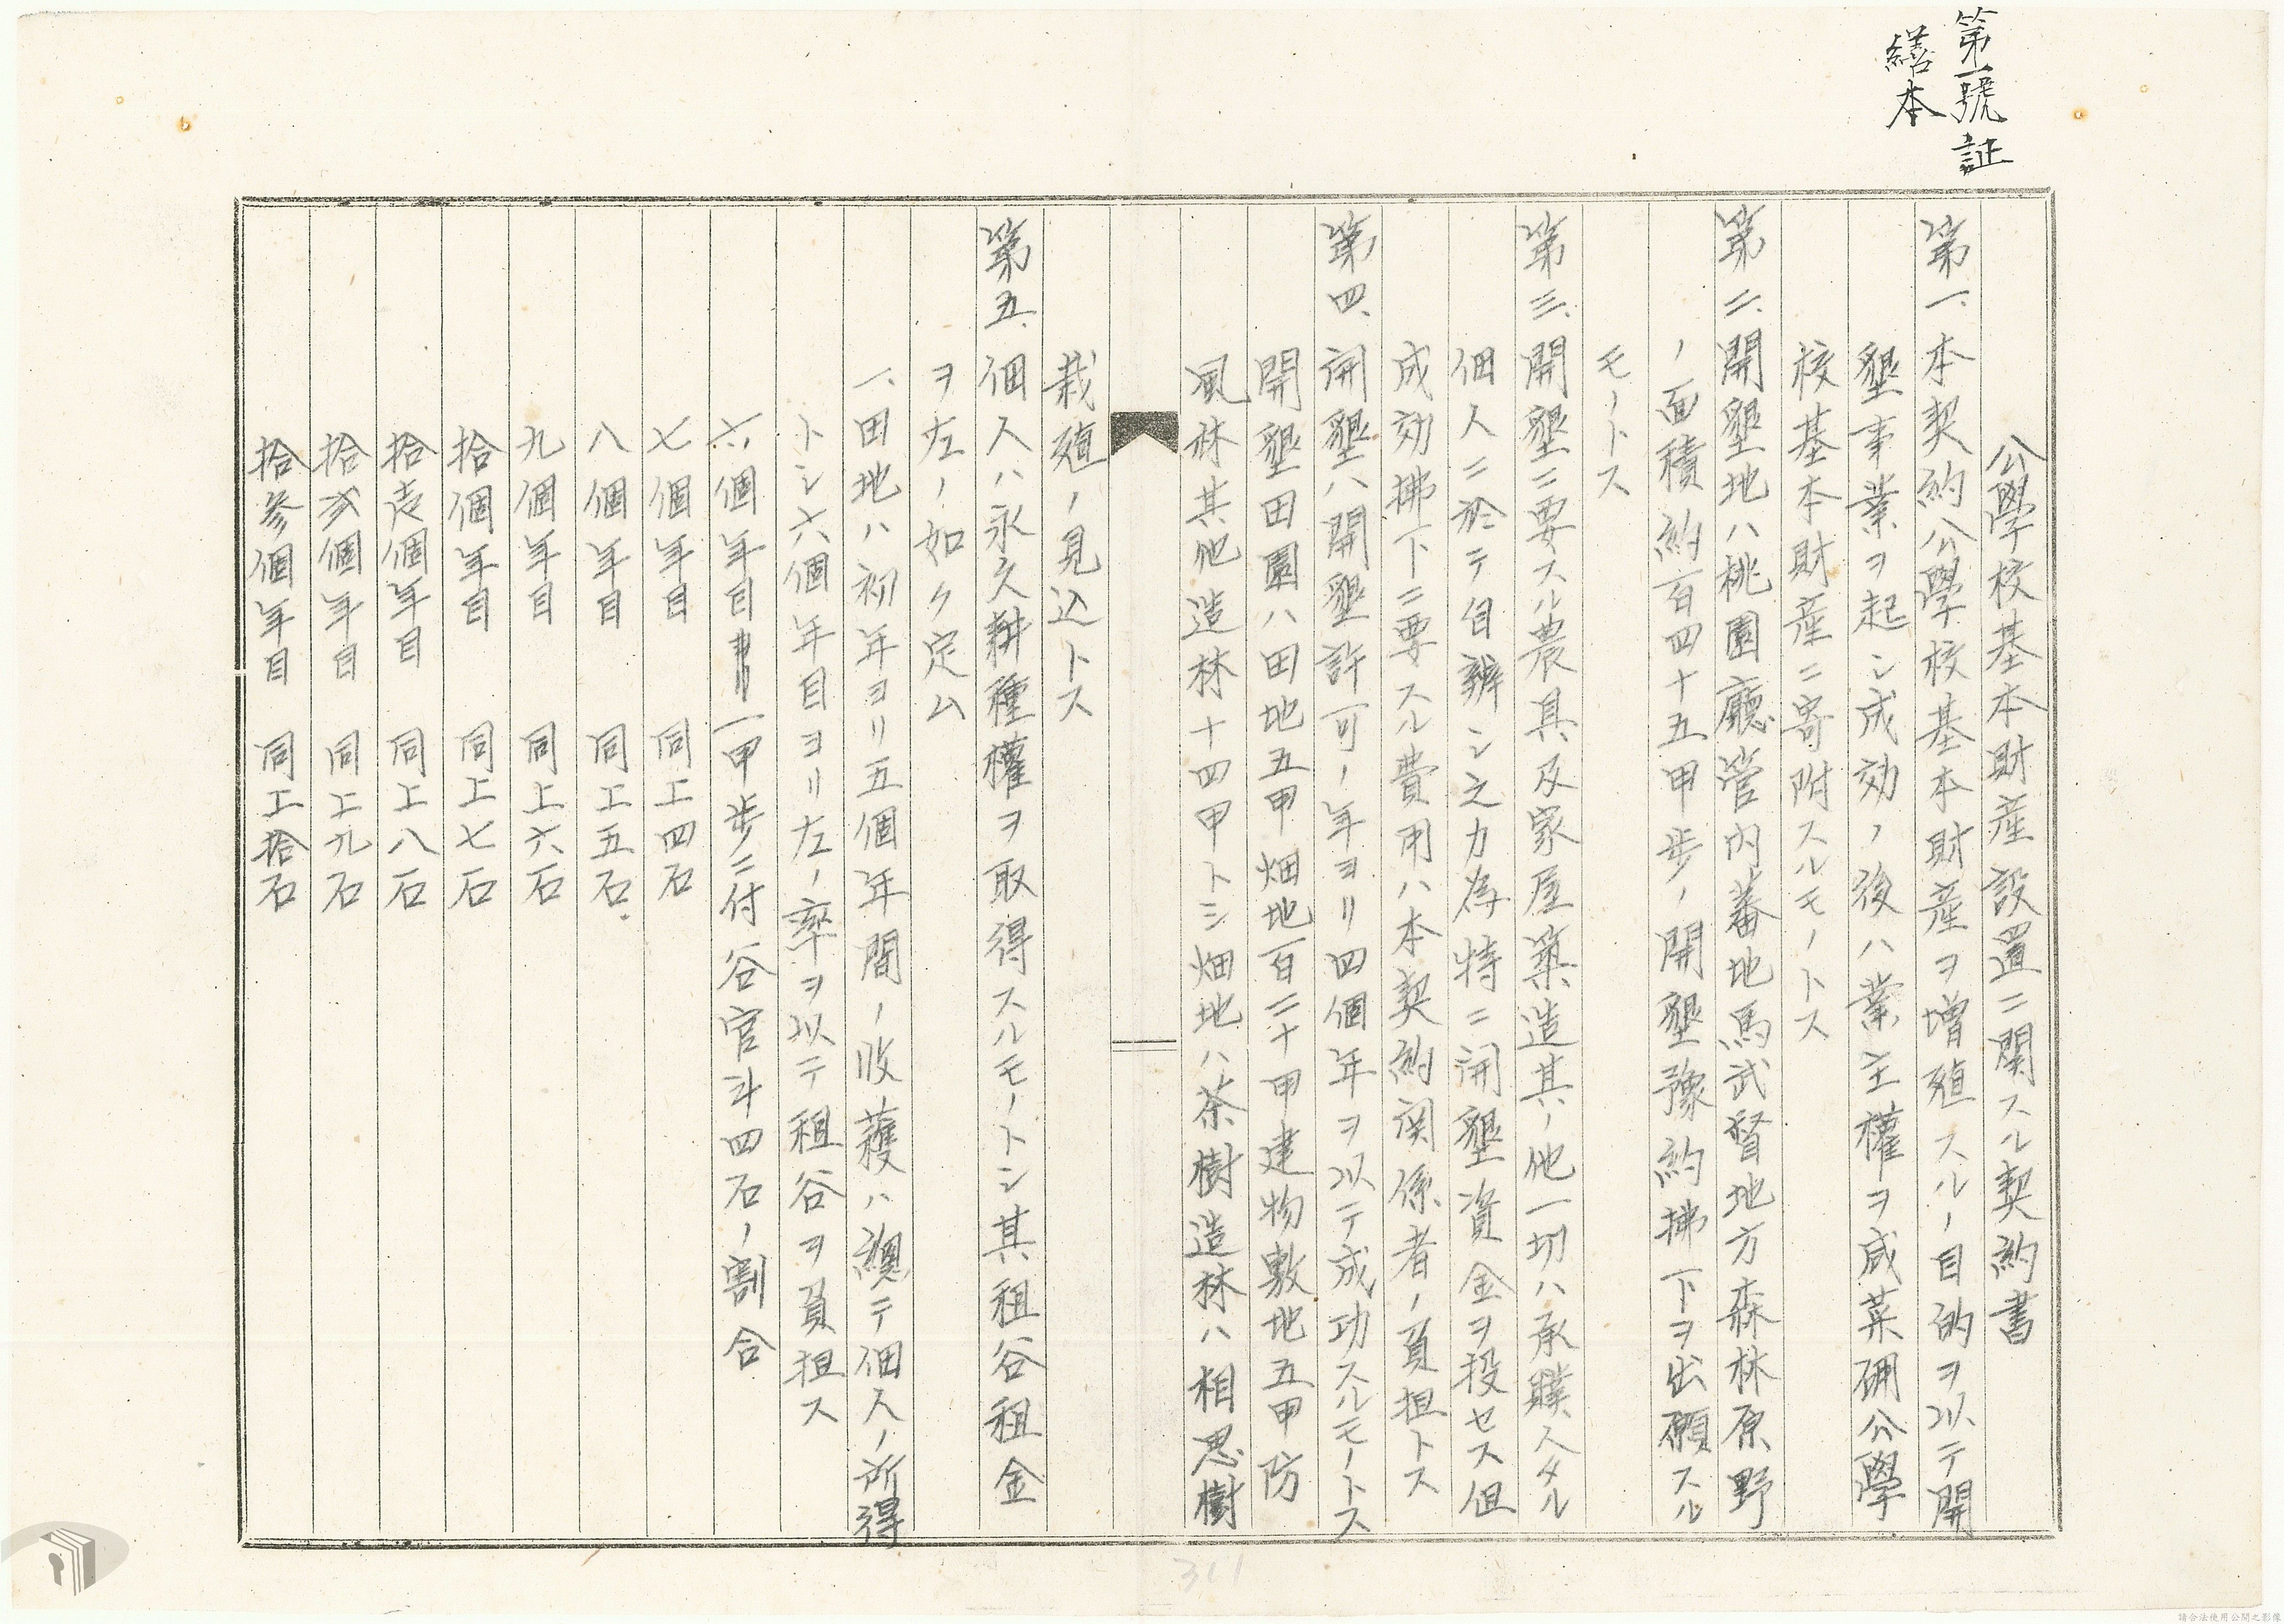 第一號証
繕本
公學校基本財產設置ニ関スル契約書
第一、本契約公學校基本財產ヲ増殖スルノ目的ヲ以テ開
墾事業ヲ起シ成効ノ後ハ業主權ヲ咸菜硼公學
校基本財產ニ寄附スルモノトス
第二、開墾地ハ桃園廳管内蕃地馬武督地方森林原野
ノ面積約百四十五甲歩ノ開墾豫約拂下ヲ出願スル
モノトス
第三、開墾ニ要スル農具及家屋築造其ノ他一切ハ承購人タル
個人ニ於テ自辨シ之カ為特ニ開墾資金ヲ投セス但
成効拂下ニ要スル費用ハ本契約関係者ノ負担トス
第四、開墾ハ開墾許可ノ年ヨリ四個年ヲ以テ成功スルモノトス
開墾田園ハ田地五甲畑地百二十甲建物敷地五甲防
風林其他造林十四甲トシ畑地ハ茶樹造林ハ相思樹
栽殖ノ見込トス
第五、個人ハ永久耕種權ヲ取得スルモノトシ其租谷租金
ヲ左ノ如ク定ム
一、田地ハ初年ヨリ五個年間ノ收穫ハ總テ個人ノ所得
トシ六個年目ヨリ左ノ率ヲ以テ租谷ヲ負担ス
六個年目 一甲歩ニ付谷官斗四石ノ割合
七個年目 同上四石
八個年目 同上五石
九個年目 同上六石
拾個年目 同上七石
拾壱個年目 同上八石
拾弐個年目 同上九石
拾参個年目 同上拾石
311
請合法使用公開之影像